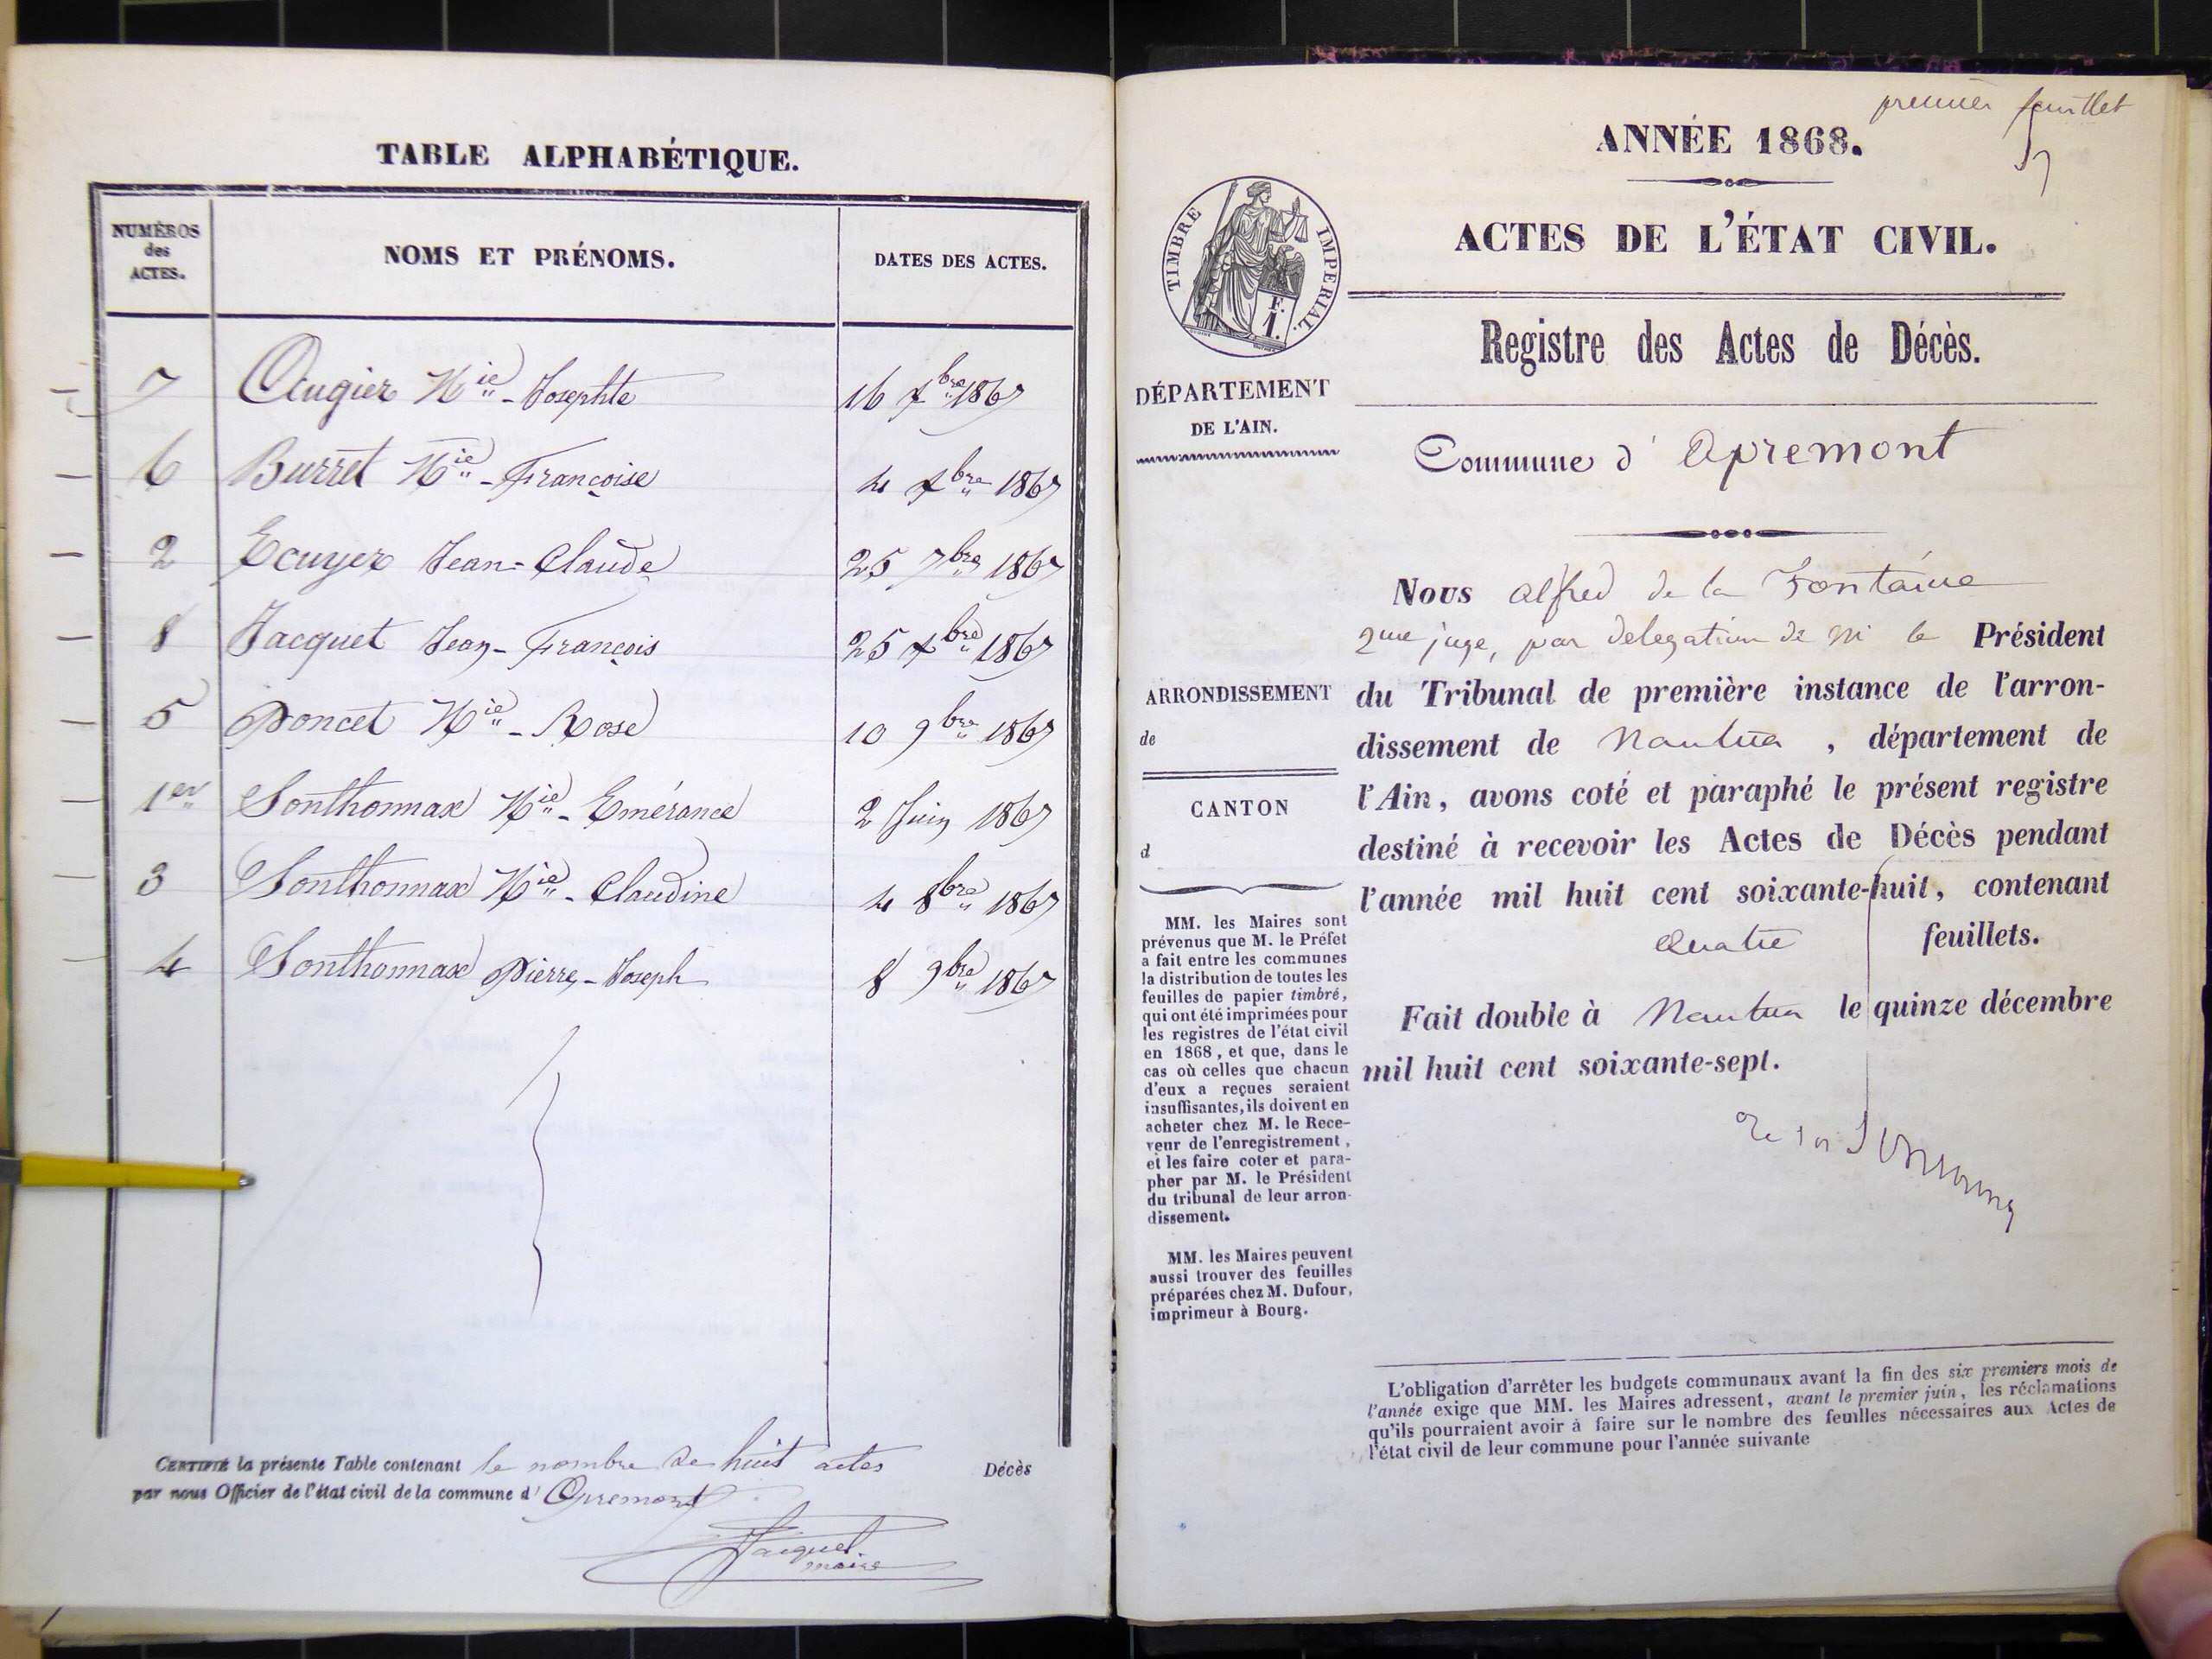 TABLE ALPHABÉTIQUE.
NUMÉROS des ACTES.
NOMS ET PRÉNOMS.
DATES DES ACTES.
7 Augier Mie - Josephte 16 Xbre 1867
6 Burret Mie - Françoise 4 Xbre 1867
2 Ecuyer Jean - Claude 25 7bre 1867
8 Jacquet Jean - François 25 Xbre 1867
5 Poncet Mie - Rose 10 9bre 1867
1er Sonthonnax Mie - Emérance 2 Juin 1867
3 Sonthonnax Mie - Claudine 4 8bre 1867
4 Sonthonnax Pierre - Joseph 8 9bre 1867
CERTIFIÉ la présente Table contenant le nombre de huit actes Décès
par nous Officier de l'état civil de la commune d' Apremont
Jacquet
maire
premier feuillet
ANNÉE 1868.
ACTES DE L'ÉTAT CIVIL.
TIMBRE IMPERIAL.
F.
1.
Registre des Actes de Décès.
DÉPARTEMENT
DE L'AIN.
Commune d' Apremont
Nous Alfred de la Fontaine
2me juge, par delegation de M le Président
du Tribunal de première instance de l'arron-
dissement de Nantua, département de
l'Ain, avons coté et paraphé le présent registre
destiné à recevoir les Actes de Décès pendant
l'année mil huit cent soixante-huit, contenant
Quatre feuillets.
Fait double à Nantua le quinze décembre
mil huit cent soixante-sept.
ARRONDISSEMENT
de
CANTON
d
MM. les Maires sont
prévenus que M. le Préfet
a fait entre les communes
la distribution de toutes les
feuilles de papier timbré,
qui ont été imprimées pour
les registres de l'état civil
en 1868, et que, dans le
cas où celles que chacun
d'eux a reçues seraient
insuffisantes, ils doivent en
acheter chez M. le Rece-
veur de l'enregistrement,
et les faire coter et para-
pher par M. le Président
du tribunal de leur arron-
dissement.
MM. les Maires peuvent
aussi trouver des feuilles
préparées chez M. Dufour,
imprimeur à Bourg.
L'obligation d'arrêter les budgets communaux avant la fin des six premiers mois de
l'année exige que MM. les Maires adressent, avant le premier juin, les réclamations
qu'ils pourraient avoir à faire sur le nombre des feuilles nécessaires aux Actes de
l'état civil de leur commune pour l'année suivante